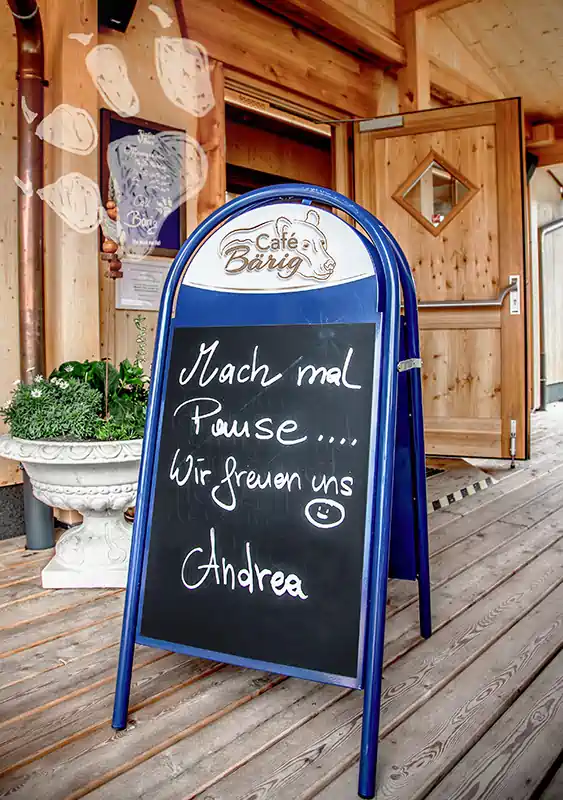 Café
Bärig
Mach mal
Pause ....
Wir freuen uns
Andrea